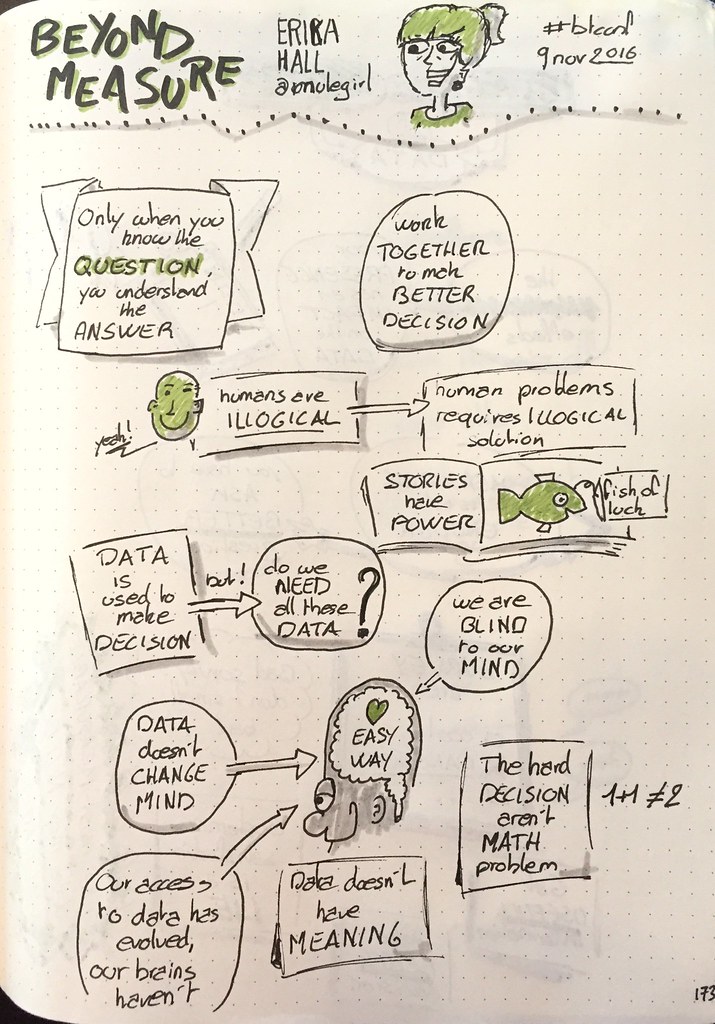 BEYOND
MEASURE
ERIKA
HALL
@mulegirl
#btconf
9 nov 2016
Only when you
know the
QUESTION,
you understand
the
ANSWER
work
TOGETHER
to mak
BETTER
DECISION
yeah!
humans are
ILLOGICAL
human problems
requires ILLOGICAL
solution
STORIES
have
POWER
fish of
luck
DATA
is
used to
make
DECISION
but!
do we
NEED
all these
DATA
?
we are
BLIND
to our
MIND
DATA
doesn't
CHANGE
MIND
EASY
WAY
The hard
DECISION
aren't
MATH
problem
1+1 ≠ 2
Our access
to data has
evolved,
our brains
haven't
Data doesn't
have
MEANING
173